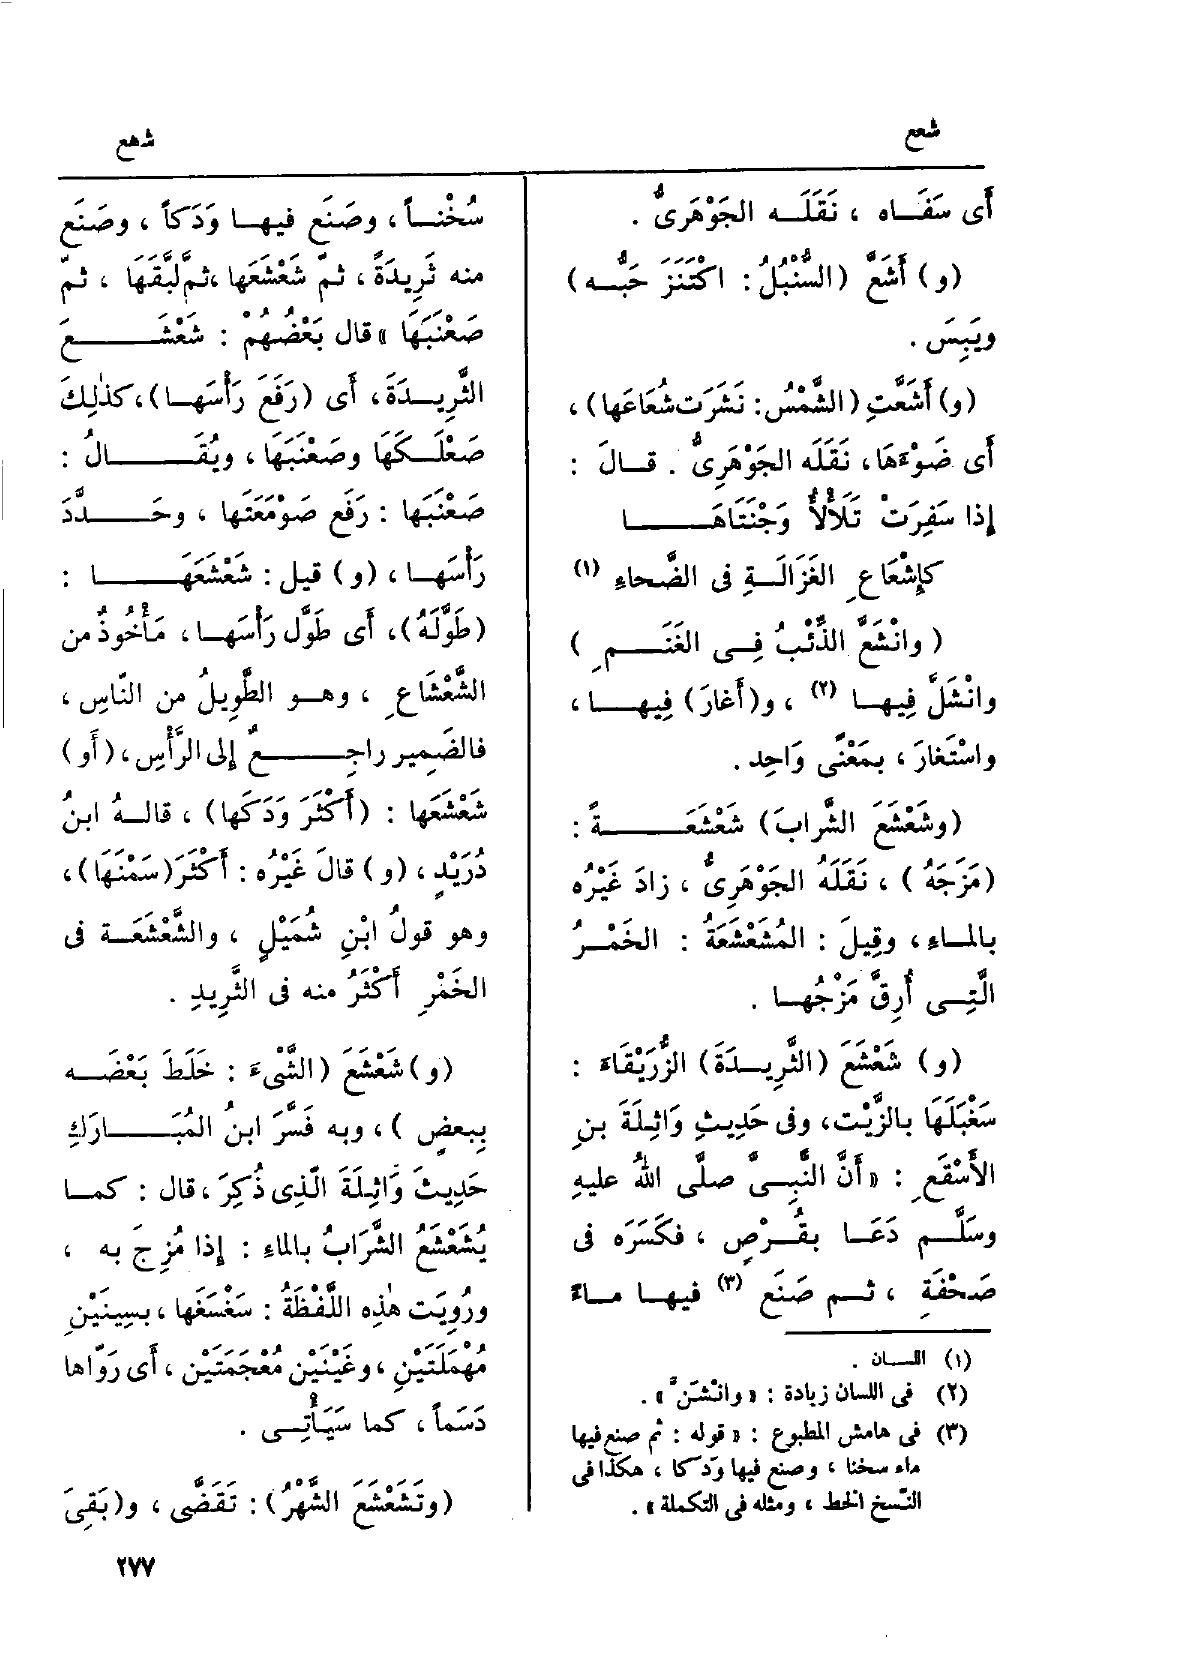 شعع
شعع
أَى سَفَاه ، نَقَلَه الجَوْهَرِىُّ .
(و) أَشَعَّ (السُّنْبُلُ : اكْتَنَزَ حَبُّه)
ويَبِسَ .
(و) أَشَعَّتِ (الشَّمْسُ : نَشَرَت شُعَاعَها) ،
أَى ضَوْءَها ، نَقَلَه الجَوْهَرِىُّ . قال :
إِذا سَفِرَتْ تَلَأْلأُ وَجْنَتَاهَا
كإِشْعَاعِ الغَزَالَةِ فى الضَّحاءِ (١)
(وانْشَعَّ الذِّئْبُ فِى الغَنَمِ)
وانْشَلَّ فِيها (٢) ، و(أَغارَ) فِيها ،
واسْتَغارَ ، بمَعْنًى وَاحِد .
(وشَعْشَعَ الشَّرابَ) شَعْشَعَةً :
(مَزَجَهُ) ، نَقَلَهُ الجَوْهَرِىُّ ، زادَ غَيْرُه
بالماءِ ، وقِيلَ : المُشَعْشَعَةُ : الخَمْرُ
الَّتِى أُرِقَّ مَزْجُها .
(و) شَعْشَعَ (الثَّرِيدَةَ) الزُّرَيْقَاءَ :
سَغْبَلَهَا بالزَّيْت ، وفى حَدِيثِ وَاثِلَةَ بنِ
الأَسْقَعِ : « أَنَّ النَّبِىَّ صلَّى اللهُ عليهِ
وسَلَّم دَعَا بقُرْصٍ ، فكَسَرَه فى
صَحْفَةٍ ، ثم صَنَع (٣) فيها ماءً
(١) اللسان .
(٢) فى اللسان زيادة : « وانْشَنَّ » .
(٣) فى هامش المطبوع : « قوله : ثم صنع فيها
ماء سخنا ، وصنع فيها وَدكا ، هكذا فى
النسخ الخط ، ومثله فى التكملة » .
سُخْناً ، وصَنَع فيها وَدَكاً ، وصَنَع
منه ثَرِيدَةً ، ثمّ شَعْشَعَها ، ثمَّ لَبَّقَهَا ، ثمّ
صَعْنَبَهَا » قال بَعْضُهُمْ : شَعْشَعَ
الثَّرِيدَةَ ، أَى (رَفَعَ رَأْسَها) ، كذٰلِكَ
صَعْلَكَهَا وصَعْنَبَهَا ، ويُقَالُ :
صَعْنَبَها : رَفَع صَوْمَعَتَها ، وحَدَّدَ
رَأْسَها ، (و) قيل : شَعْشَعَهَا :
(طَوَّلَهُ) ، أَى طَوَّل رَأْسَها ، مَأْخُوذٌ من
الشَّعْشَاعِ ، وهو الطَّوِيلُ من النّاسِ ،
فالضَمِير راجِعٌ إلى الرَّأْسِ ، (أَو)
شَعْشَعَها : (أَكْثَرَ وَدَكَها) ، قالهُ ابنُ
دُرَيْدٍ ، (و) قالَ غَيْرُه : أَكْثَرَ (سَمْنَهَا) ،
وهو قولُ ابْنِ شُمَيْلٍ ، والشَّعْشَعَة فى
الخَمْرِ أَكْثَرُ منه فى الثَّرِيدِ .
(و) شَعْشَعَ (الشَّىْءَ : خَلَطَ بَعْضَه
بِبعضٍ) ، وبه فَسَّرَ ابنُ المُبَارَكِ
حَدِيثَ وَاثِلَةَ الَّذِى ذُكِرَ ، قال : كما
يُشَعْشَعُ الشَّرَابُ بالماءِ : إذا مُزِجَ به ،
ورُوِيَت هٰذِه اللَّفْظَةُ : سَغْسَغَها ، بسِينَيْنِ
مُهْمَلَتَيْنِ ، وغَيْنَيْنِ مُعْجَمَتَيْنِ ، أَى رَوَّاها
دَسَماً ، كما سَيَأْتِى .
(وتَشَعْشَعَ الشَّهْرُ) : تَقَضَّى ، و(بَقِىَ
٢٧٧